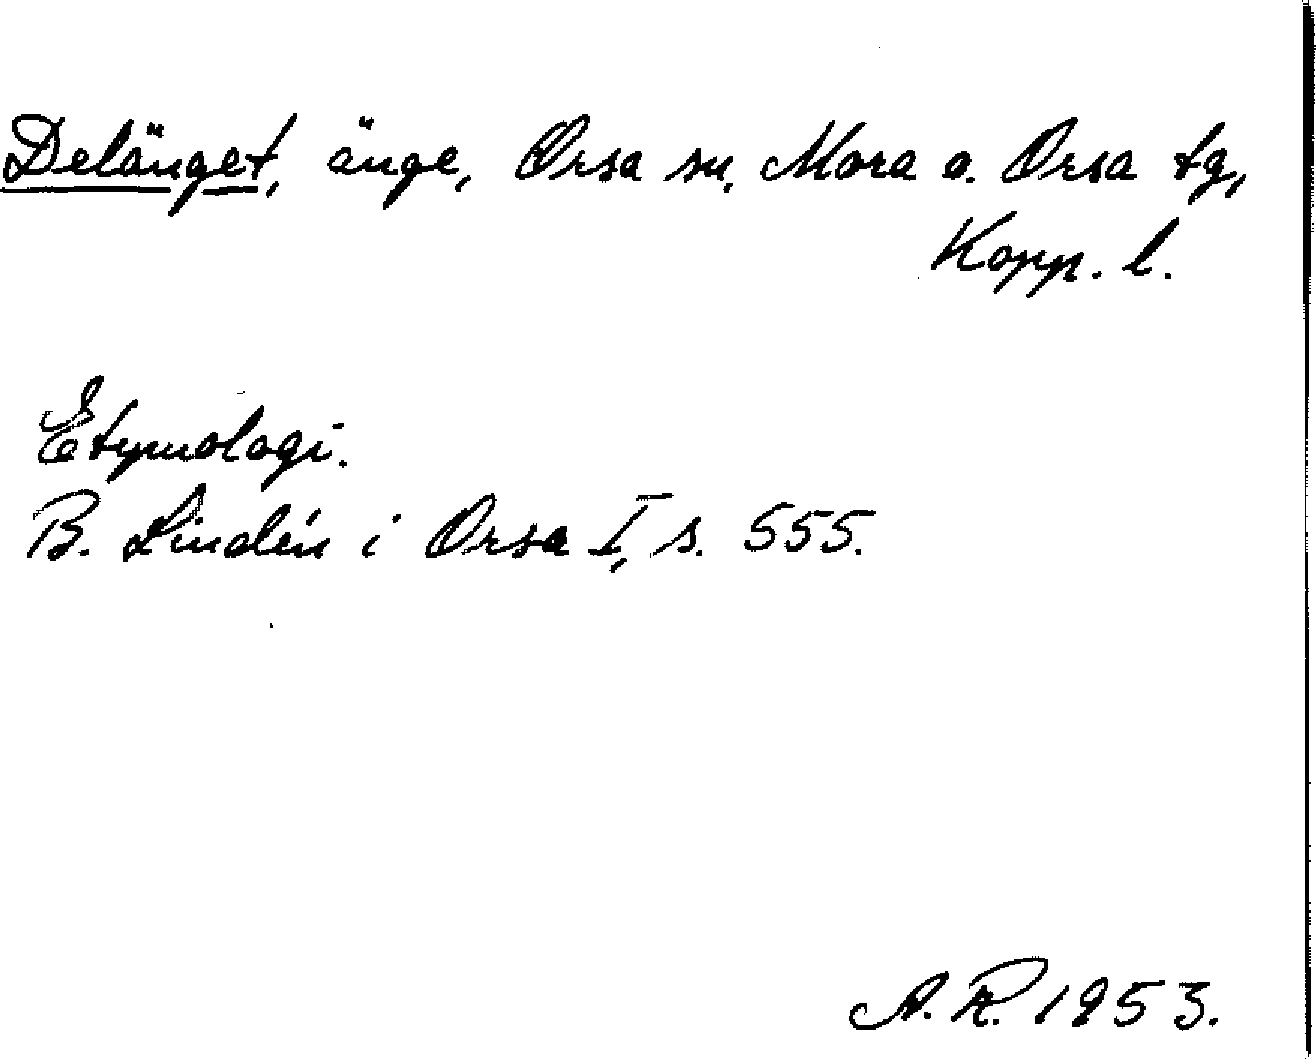 Delänget, änge, Orsa sn, Mora o. Orsa tg,
Kopp. l.
Etymologi.
B. Lindén i Orsa I, s. 555.
A. R. 1953.